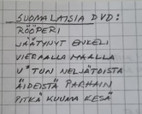 SUOMALAISIA DVD:
RÖÖPERI
JÄÄTYNYT ENKELI
VIERAALLA MAALLA
V*TUN NELJÄTOISTA
ÄIDEISTÄ PARHAIN
PITKÄ KUUMA KESÄ